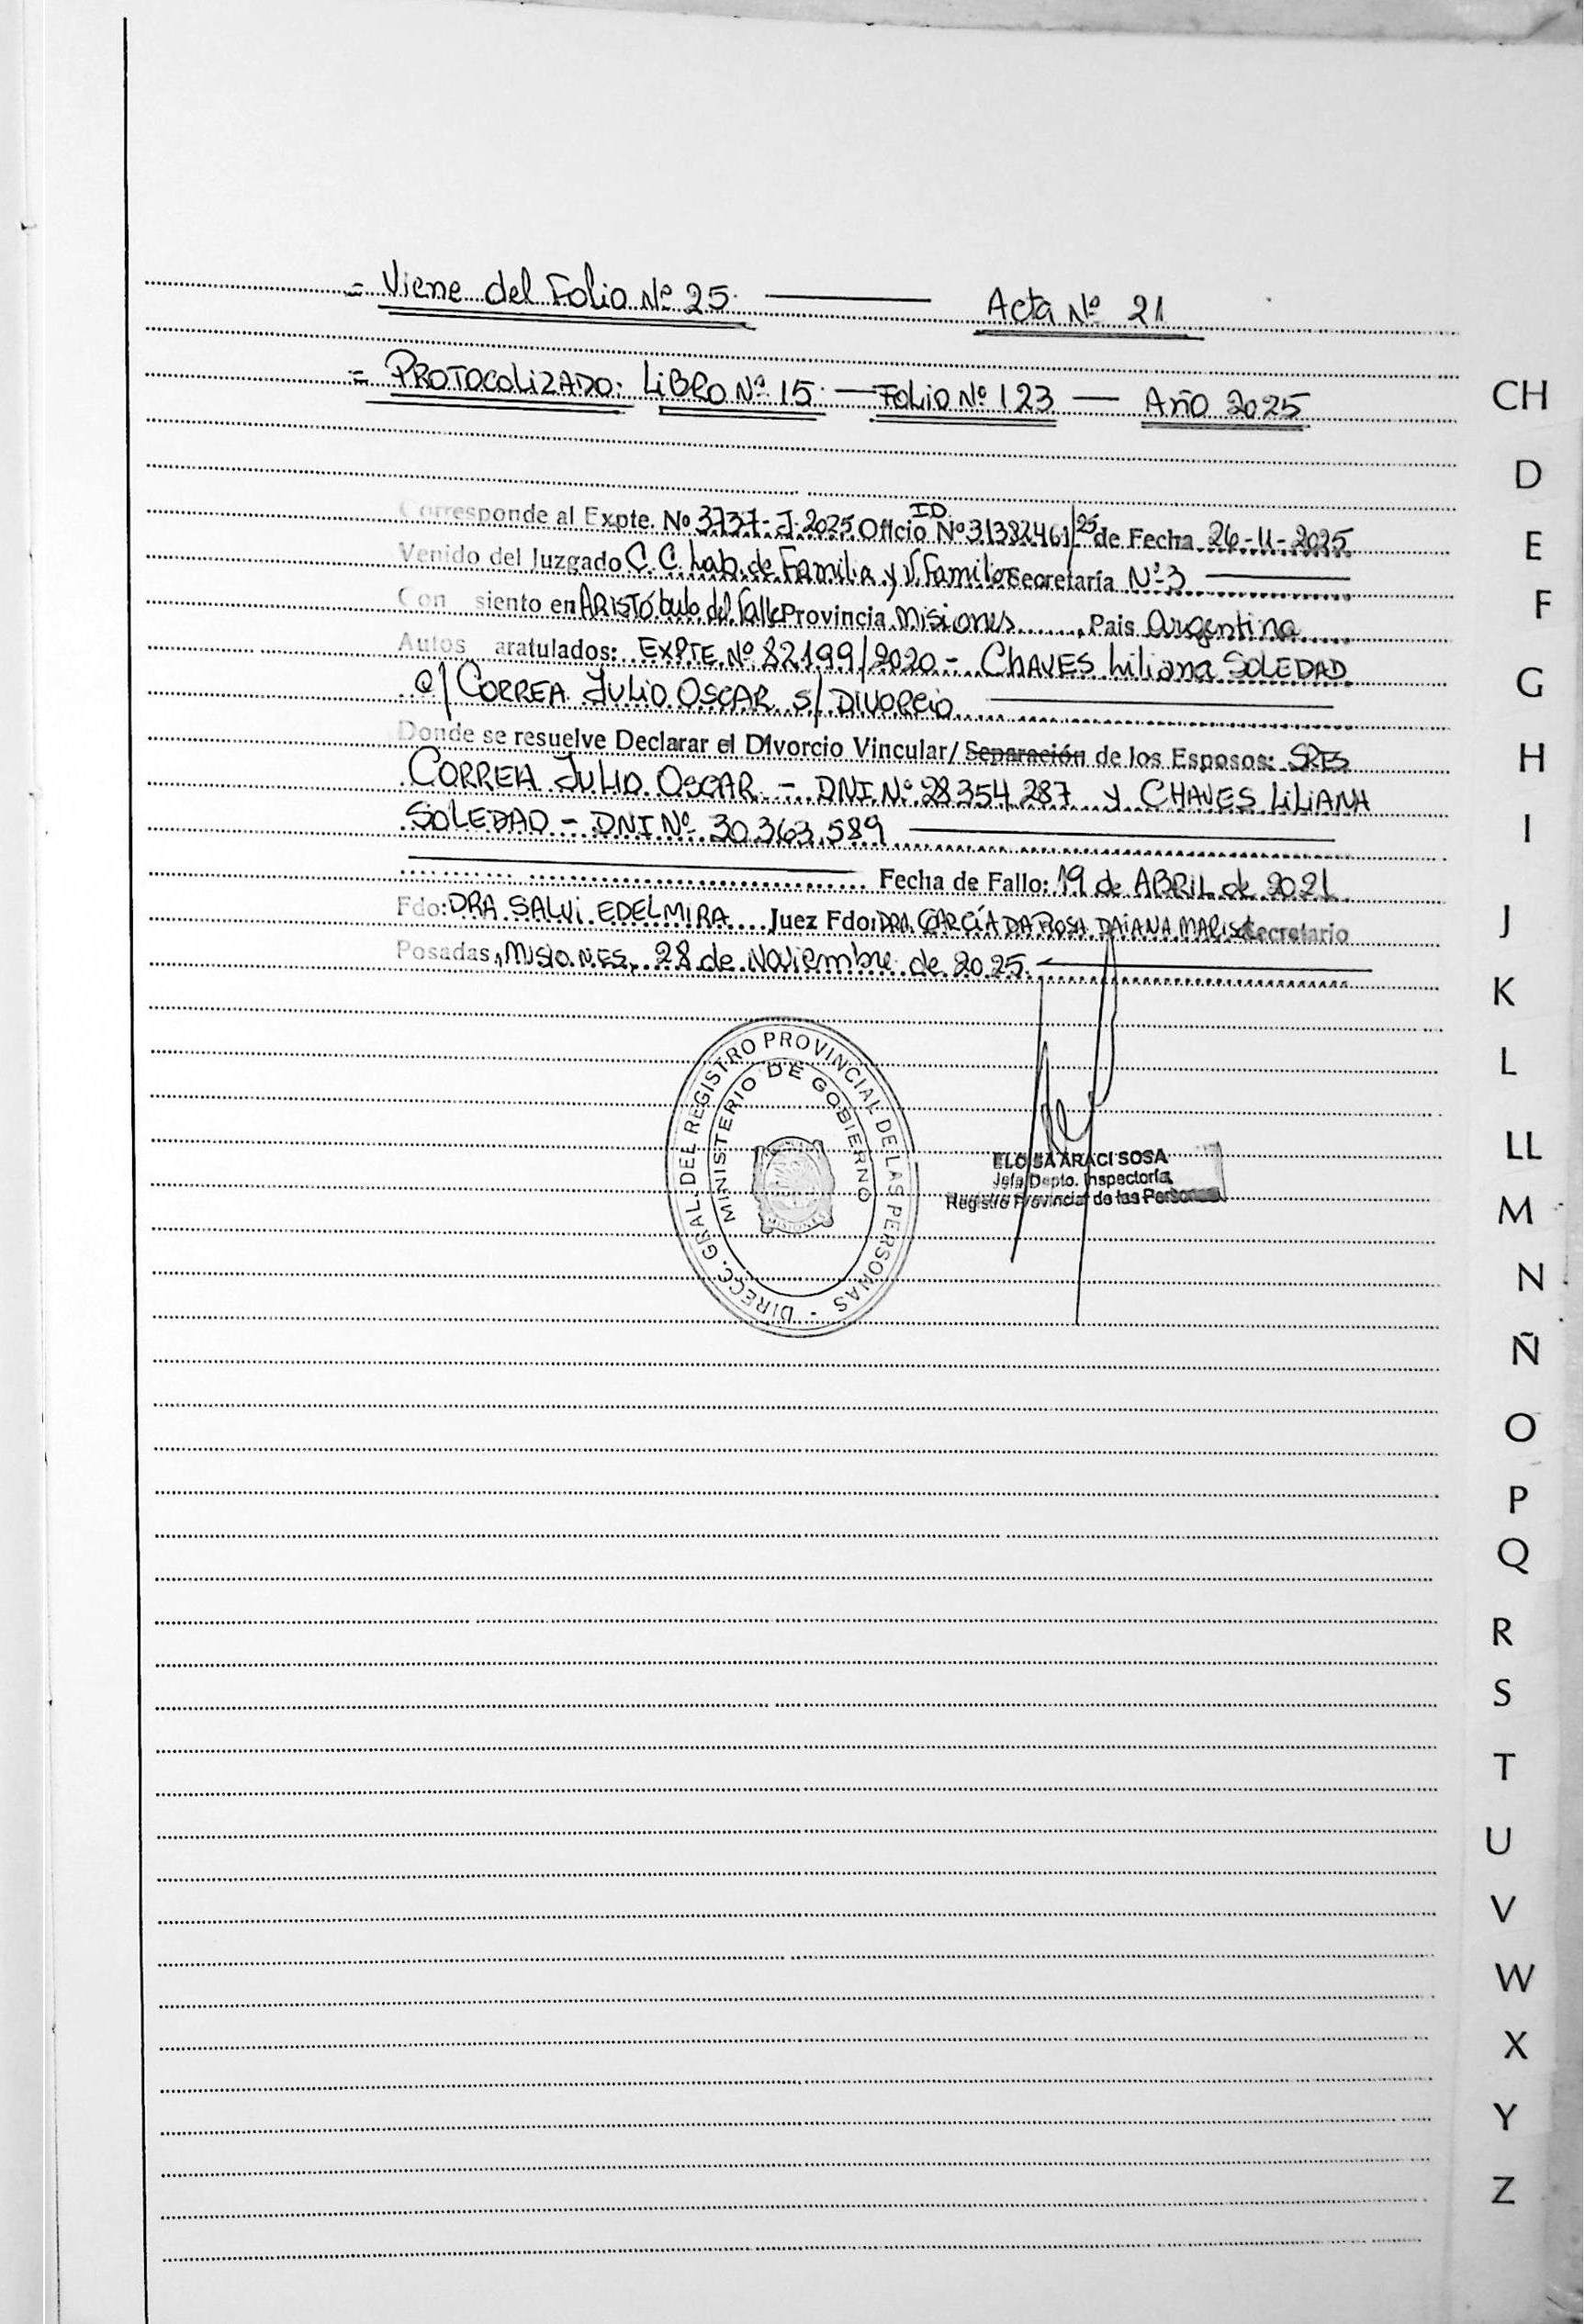 = Viene del Folio Nº 25. — Acta Nº 21
= PROTOCOLIZADO: LIBRO Nº 15 — FOLIO Nº 123 — AÑO 2025
Corresponde al Expte. Nº 3737-J-2025 Oficio ID Nº 31382461/25 de Fecha 26-11-2025
Venido del Juzgado C.C. Lab. de Familia y V. Familiar Secretaría Nº 3
Con siento en ARISTÓbulo del Valle Provincia Misiones Pais Argentina
Autos aratulados: EXPTE. Nº 82199/2020 - CHAVES Liliana SOLEDAD
C/ CORREA JULIO OSCAR S/ DIVORCIO
Donde se resuelve Declarar el Divorcio Vincular/ Separación de los Esposos: SRES
CORREA JULIO OSCAR - DNI Nº 28354.287 y CHAVES LILIANA
SOLEDAD - DNI Nº 30.363.589
Fecha de Fallo: 19 de ABRIL de 2021
Fdo: DRA. SALVI EDELMIRA Juez Fdo: DRA. GARCÍA DA ROSA DAIANA MARISA Secretario
Posadas, Misiones, 28 de Noviembre de 2025.
DIRECC. GRAL. DEL REGISTRO PROVINCIAL DE LAS PERSONAS -
MINISTERIO DE GOBIERNO
MISIONES
ELOISA ARACI SOSA
Jefa Depto. Inspectoría
Registro Provincial de las Personas
CH
D
E
F
G
H
I
J
K
L
LL
M
N
Ñ
O
P
Q
R
S
T
U
V
W
X
Y
Z